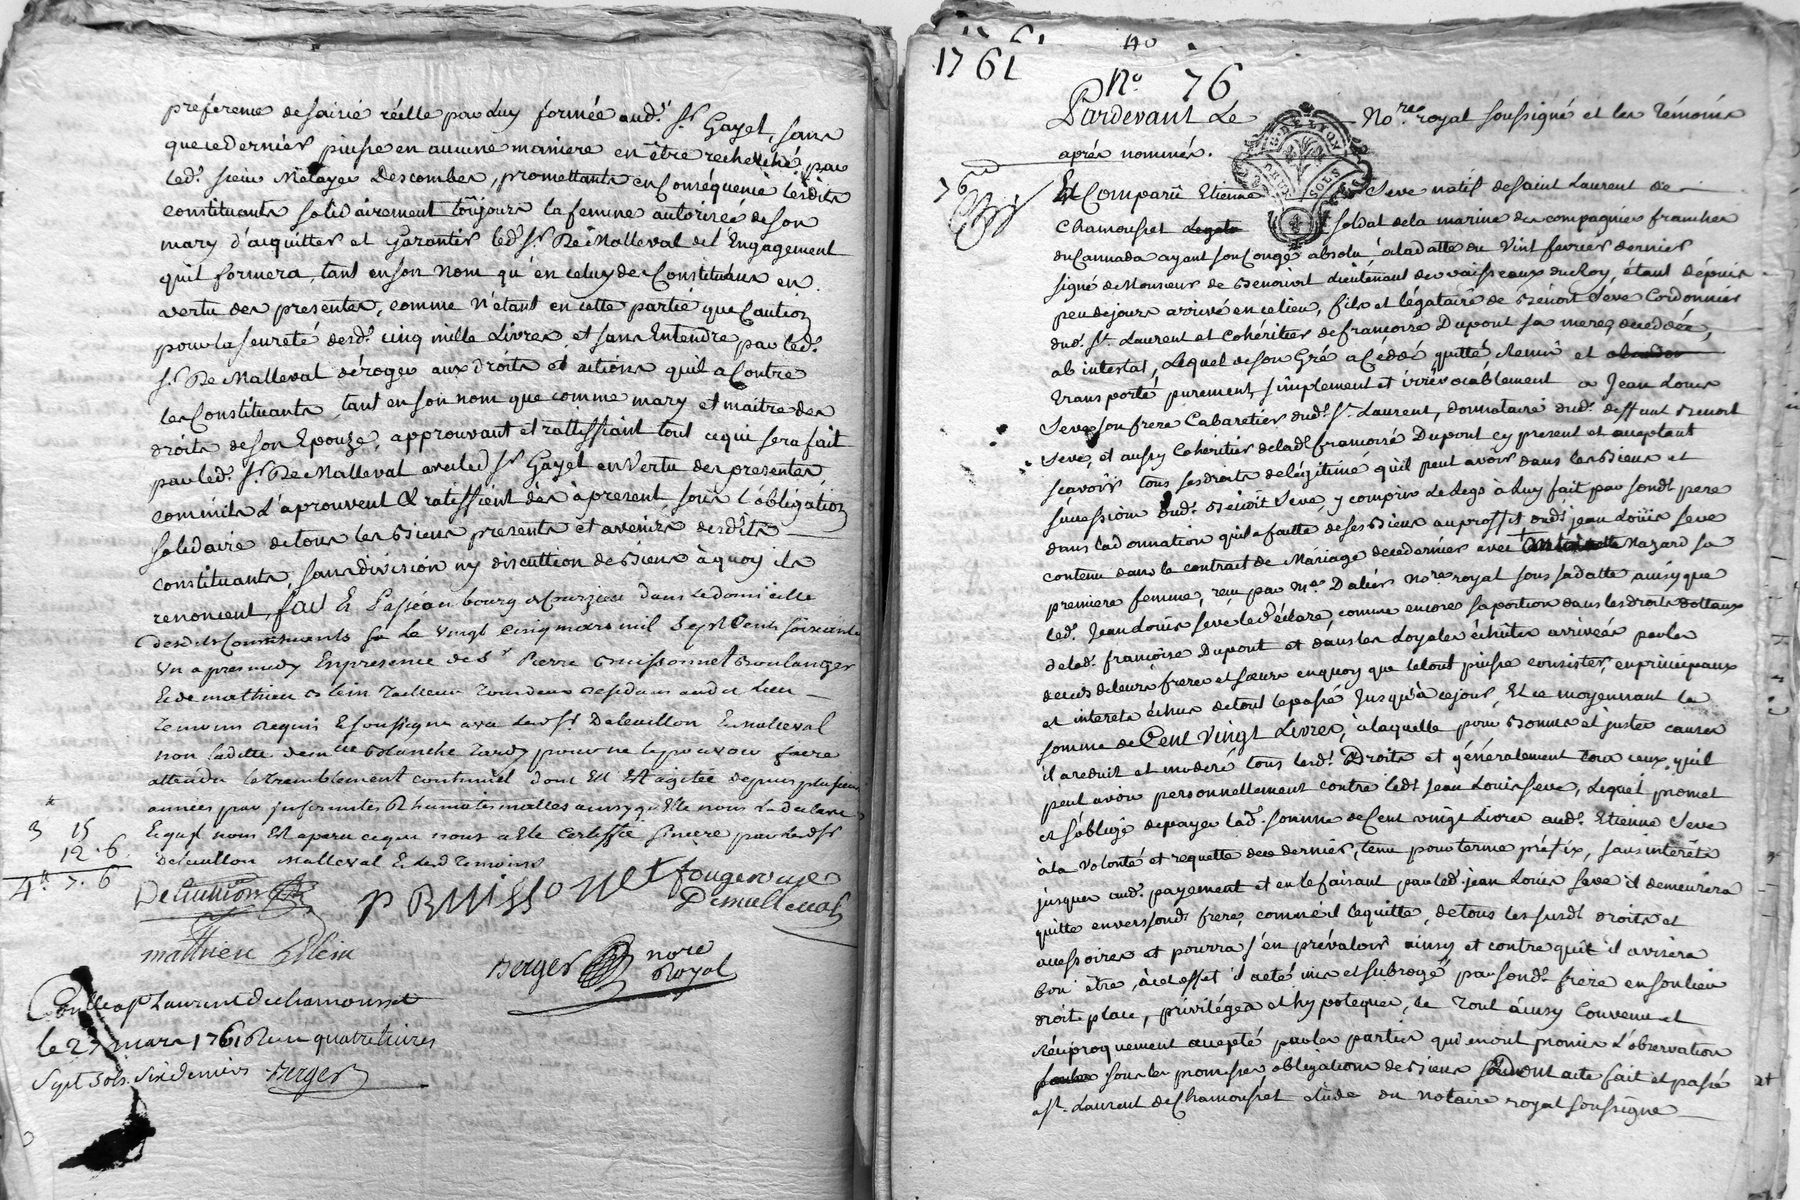 preférence de saisie réelle par luy formée aud.t S.r Gayet, sans
que ce dernier puisse en aucune maniere en être recherché par
led.t sieur Mélayer Descombes, promettants en Conséquence lesdits
constituants solidairement toûjours la femme autorisée de son
mary d'acquitter et Garantir led.t S.r De Malleval de l'Engagement
quil formera, tant en son nom qu'en celuy des Constituans en
vertu des presentes, comme n'étant en cette partie que Caution
pour la seureté desd.t cinq mille Livres, et sans Entendre par led.t
S.r De Malleval déroger aux droits et actions quil a Contre
les Constituants, tant en son nom que comme mary et maitre des
droits de son Epouze, approuvant et rattiffiant tout ce qui sera fait
par led.t S.r De Malleval avec led S.r Gayet en Vertu des presentes,
comm'ils L'aprouvent & ratiffient dès àpresent, sous l'obligation
solidaire de tous les Biens presents et avenirs desdits
constituants, sans division ny discuttion de Biens à quoy ils
renoncent, fait & Passé au bourg de Courzieu dans le domicille
desdits Constituants ce Le vingt cinq mars mil Sept Cents soixante
un apres midy En presence de S.r Pierre Buissonnet Boulanger
& de mathieu Blein tailleur tous deux residans audit Lieu
temoins requis & soussignes avec lesd. Sr Deleuillon & Malleval
non ladite dem.lle Blanche Tardy pour ne le pouvoir faire
attendu le tremblement continuel dont Ell Est agitée depuis plusieurs
années par infirmités Rhumatismalles ainsy qu'elle nous l'a declaré
& qu'il nous Est aparu ce que nous a Ete Certiffié sincere par lesd Srs
Deleuillon Malleval & lesd temoins
3 15
12 . 6
4.tt 7 . 6
Deleuillon
P BUISSONNET
fougerouse
Demalleval
mathieu Blein
Berger nore
Royal
Conllé a St Laurent de chamousset
le 27 mars 1761 Reçu quatre livres
Sept Sols Six deniers Berger
1761
N.o 76
Pardevant Le No.re royal soussigné et les témoins
aprés nommés.
76
Est Comparü Etienne Seve natif de Saint Laurent de
Chamousset soldat de la marine des compagnies franches
du Cannada ayant son Congé absolu, à la datte du Vint février dernier
signé de Monsieur de Benoivit Lieutenant des vaisseaux du Roy, étant dépuis
peu de jours arrivé en ce lieu, fils et légataire de Bénoit Séve Cordonnier
dud. St. Laurent et Cohéritier de françoise Dupont sa mere, décédée,
ab intestat, Lequel de son Gré a Cédé, quitté, Remis et
transporté purement, simplement et irrévocâblement a Jean Louis
Seve son frere Cabaretier dud.t St. Laurent, donnataire dud.t deffunt Benoit
Seve, et aussy Cohéritier de lad.t françoise Dupont cy present et acceptant
scavoir tous ses droits de légitime quil peut avoir dans les Biens et
succession dud.t Bénoit Seve, y compris Le Legs à Luy fait par sond.t pere
dans la donnation quil a faitte de ses Biens au proffit dud.t jean Loüis Seve
contenu dans le contrait de Mariage de ce dernier avec Nazard sa
premiere femme, reçu par M.e Dalier No.re royal sous sa datte ainsy que
led.t Jean Loüis Seve le déclare, comme encore sa portion dans les droits dottaux
de lad.t françoise Dupont et dans les Loyales échûtes arrivées par les
decés de leurs freres et sœurs en quoy que le tout puisse consister, en principaux
et interets échus de tout le passé Jusqu'à ce jour, Et ce moyennant la
somme de Cent Vingt Livres, à laquelle pour Bonnes et justes causes
il a reduit et modéré tous lesd.t Droits et généralement tous ceux, quil
peut avoir personnellement contre led.t Jean Louis Seve, Lequel promet
et s'oblige de payer lad.t somme de Cent vingt Livres aud.t Etienne Seve
à la volonté et requette de ce dernier, tenu pour terme préfix, sans interêts
jusques aud.t payement et en le faisant par led.t jean Louis Seve il demeurera
quitte envers sond.t frere, comme il le quitte, de tous les susd.t droits et
accessoires et pourra s'en prévaloir ainsy et contre qui il avisera
bon être, à cet effet il a eté mis et subrogé par sond.t frere en son lieu
droit place, privilèges et hypoteques, le Tout ainsy Convenu et
réciproquement accepté par les parties qui en ont promis l'observation
sous les promesses, obligations de Biens Dont acte fait et passé
a St. Laurent de Chamousset étude du Notaire royal soussigné